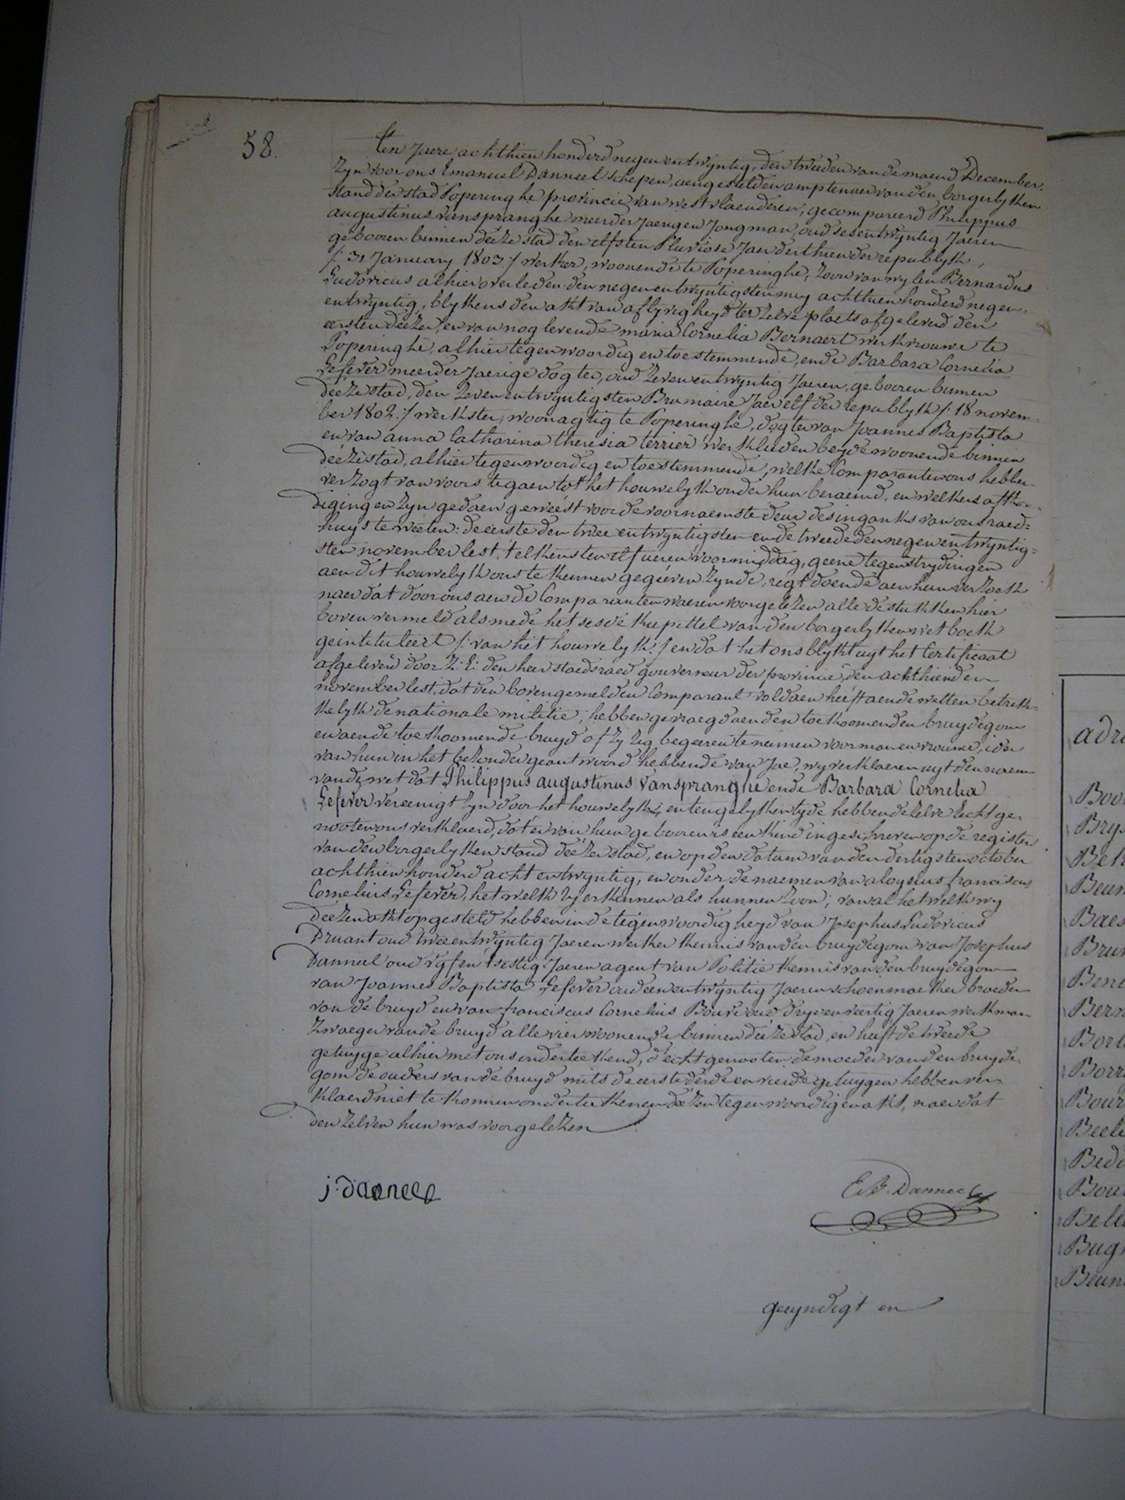 58.
Ten Jaere achthien honderd negenentwyntig, den tweeden van de maend December,
Zyn voor ons Emanuel Danneel schepen, aengestelden amptenaer van den borgerlyken
stand der stad Poperinghe provincie van westvlaenderen, gecompareerd Philippus
augustinus vanspranghe meerder Jaerigen Jongman, oud sesentwyntig Jaeren
gebooren binnen deeze stad den elfsten Pluviose Jaer derthien der republyk
/: 31 January 1803 :/ werker, woonende te Poperinghe, zoon van wylen Bernardus
Ludovicus alhier overleden den negenentwyntigsten mey achthien honderd negen-
entwyntig, blykens den akt van aflyvigheyd ter zelve plaets afgeleverd den
eersten deezer, en van nog levende maria Cornelia Bernaert werkvrouwe te
Poperinghe, alhier tegenwoordig en toestemmende, ende Barbara Cornelia
Lefever meerder Jaerige dogter, oud zevenentwyntig Jaeren, gebooren binnen
deeze stad, den zevenentwyntigsten Brumaire Jaer elf der republyk /: 18 novem-
ber 1802 :/ werkster, woonagtig te Poperinghe, dogter van Joannes Baptista
en van anna Catharina theresia terrier werklieden beyde woonende binnen
deeze stad, alhier tegenwoordig en toestemmende, welke Comparanten ons hebben
verzogt van voorstegaen tot het houwelyk onder hun beraemd, en welkers afkon-
digingen zyn gedaen geweest voor de voornaemste deur des ingangs van ons raed-
huys te weeten: de eerste den twee entwyntigsten en de tweede den negenentwyntig-
sten november lest, telkens ten elf ueren voormiddag, geene tegenstrydingen
aen dit houwelyk ons te kennen gegeven zynde, regt doende aen hun verzoek
naer dat door ons aen de Comparanten waeren voorgelezen alle de stukken hier
boven vermeld als mede het sesde kapittel van den borgerlyken wetboek
geintituleert /: van het houwelyk :/ en dat het ons blykt uyt het Certificaet
afgeleverd door Z: E: den heer staedsraed gouverneur der provincie, den achthienden
november lest, dat den bovengemelden Comparant voldaen heeft aen de wetten betrek-
kelyk de nationale militie, hebben gevraegd aen den toekoomenden bruydegom
en aen de toekoomende bruyd of zy zig begeeren te neimen voor man en vrouwe, ider
van hun in het bezonder geantwoord hebbende van Jae, wy verklaeren uyt den naem
van de wet dat Philippus augustinus Vanspranghe ende Barbara Cornelia
Lefever vereenigt zyn door het houwelyk, en tengelyken tyde hebben de zelve Echtge-
nooten ons verklaerd, dat er van hun gebooren is een kind ingeschreven op de register
van den borgerlyken stand deezer stad, en op den datum van den dertigsten october
achthien honderd acht entwyntig, en onder de naemen van aloysius franciscus
Cornelius Lefever, het welk zy erkennen als hunnen zoon, van al het welk wy
deezen akt opgesteld hebben in de tegenwoordigheyd van Josephus Ludovicus
Druant oud twee entwyntig Jaeren werker kennis van den bruydegom van Josephus
Danneel oud vyf en sestig Jaeren agent van Politie kennis van den bruydegom
van Joannes Baptista Lefever oud eenentwyntig Jaeren schoenmaeker broeder
van de bruyd en van franciscus Cornelius Boure oud dry en veertig Jaeren werkman
zwaeger van de bruyd alle vier woonende binnen deeze stad, en heeft de tweede
getuyge alhier met ons onderteekend, d'echtgenooten, de moeder van den bruyde-
gom de ouders van de bruyd mits de eerste derde en vierde getuygen hebben ver-
klaerd niet te konnen onderteekenen deezen tegenwoordigen akt, naer dat
den zelven hun was voorgelezen
j: danneel
E. B. Danneel
geeyndigt en
adr
Boo
Brys
Bek
Beun
Baes
Brun
Bene
Bern
Bort
Borr
Bour
Beele
Bede
Bou
Bele
Bugn
Boun